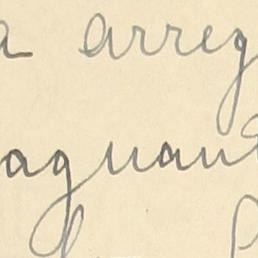 a arreg
aguan